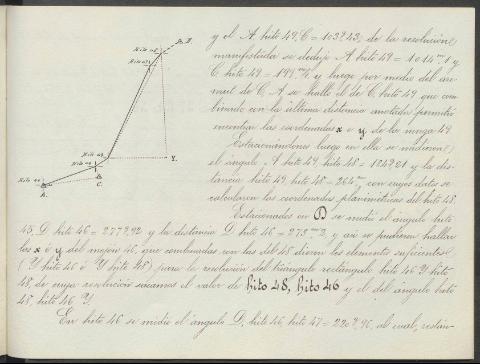 Hito 48
Hito 47
Hito 49
Hito 50
A.
B
C.
Y.
y el A hito 49, C = 103º43, de la resolucion
manifestada se dedujo A hito 49 = 1014m1 y
C hito 49 = y luego por medio del azi-
mut de C. A se halló el de C hito 49 que com-
binado con la última distancia anotada, permitió
encontrar las coordenadas x e y de la muga 49
Estacionandonos luego en ella se midieron
el ángulo A hito 49, hito 48 = 124º21 y la dis-
tancia hito 49, hito 48 = 264m, con cuyos datos se
calcularon las coordenadas planimetricas del hito 48.
Estacionados en D se midió el ángulo hito
45, D hito 46 = 277º92 y la distancia D hito 46 = y asi se pudieron hallar
las x é y del mojon 46, que combinadas con las del 48 dieron los elementos suficientes
(Y hito 46 é Y hito 48) para la resolucion del triángulo rectángulo hito 46 Y hito
48, de cuya resolucion sacamos el valor de hito 48, hito 46 y el del ángulo hito
48, hito 46 Y.
En hito 46 se midió el ángulo D, hito 46 hito 47 = 220º96, al cual, restan-